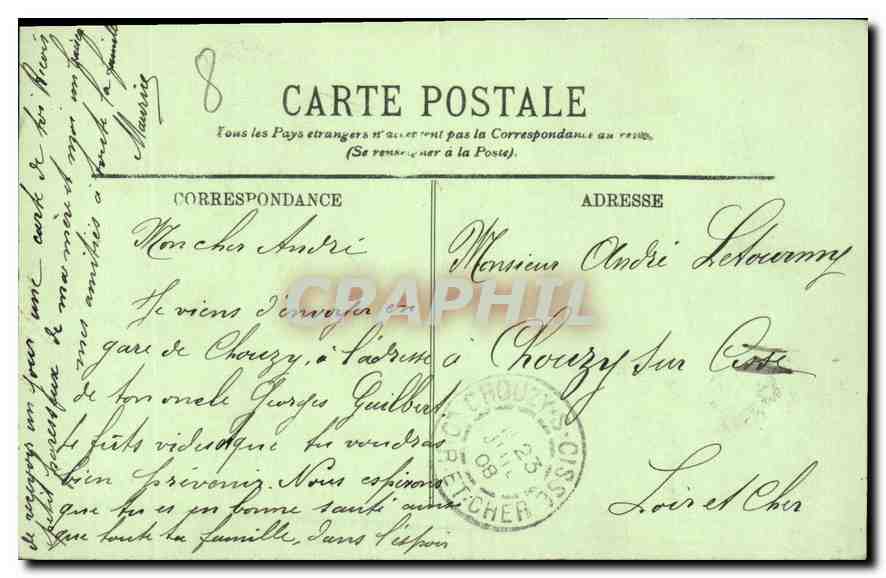 8
CARTE POSTALE
Tous les Pays étrangers n'acceptent pas la Correspondance au recto
(Se renseigner à la Poste).
CORRESPONDANCE
ADRESSE
Mon cher André
Je viens d'envoyer en
gare de Chouzy, à l'adresse
de ton oncle Georges Guilbert
fûts vides que tu voudras
bien prévenir. Nous espérons
que tu es en bonne santé ainsi
que toute ta famille, dans l'espoir
de recevoir un jour une carte de toi. Reçois
petit paresseux de même que mon
mes amitiés à toute la famille
Maurice
Monsieur André Letourmy
à Chouzy sur Cisse
Loir et Cher
CHOUZY-S-CISSE
23
08
ET-CHER
CRAPHIL